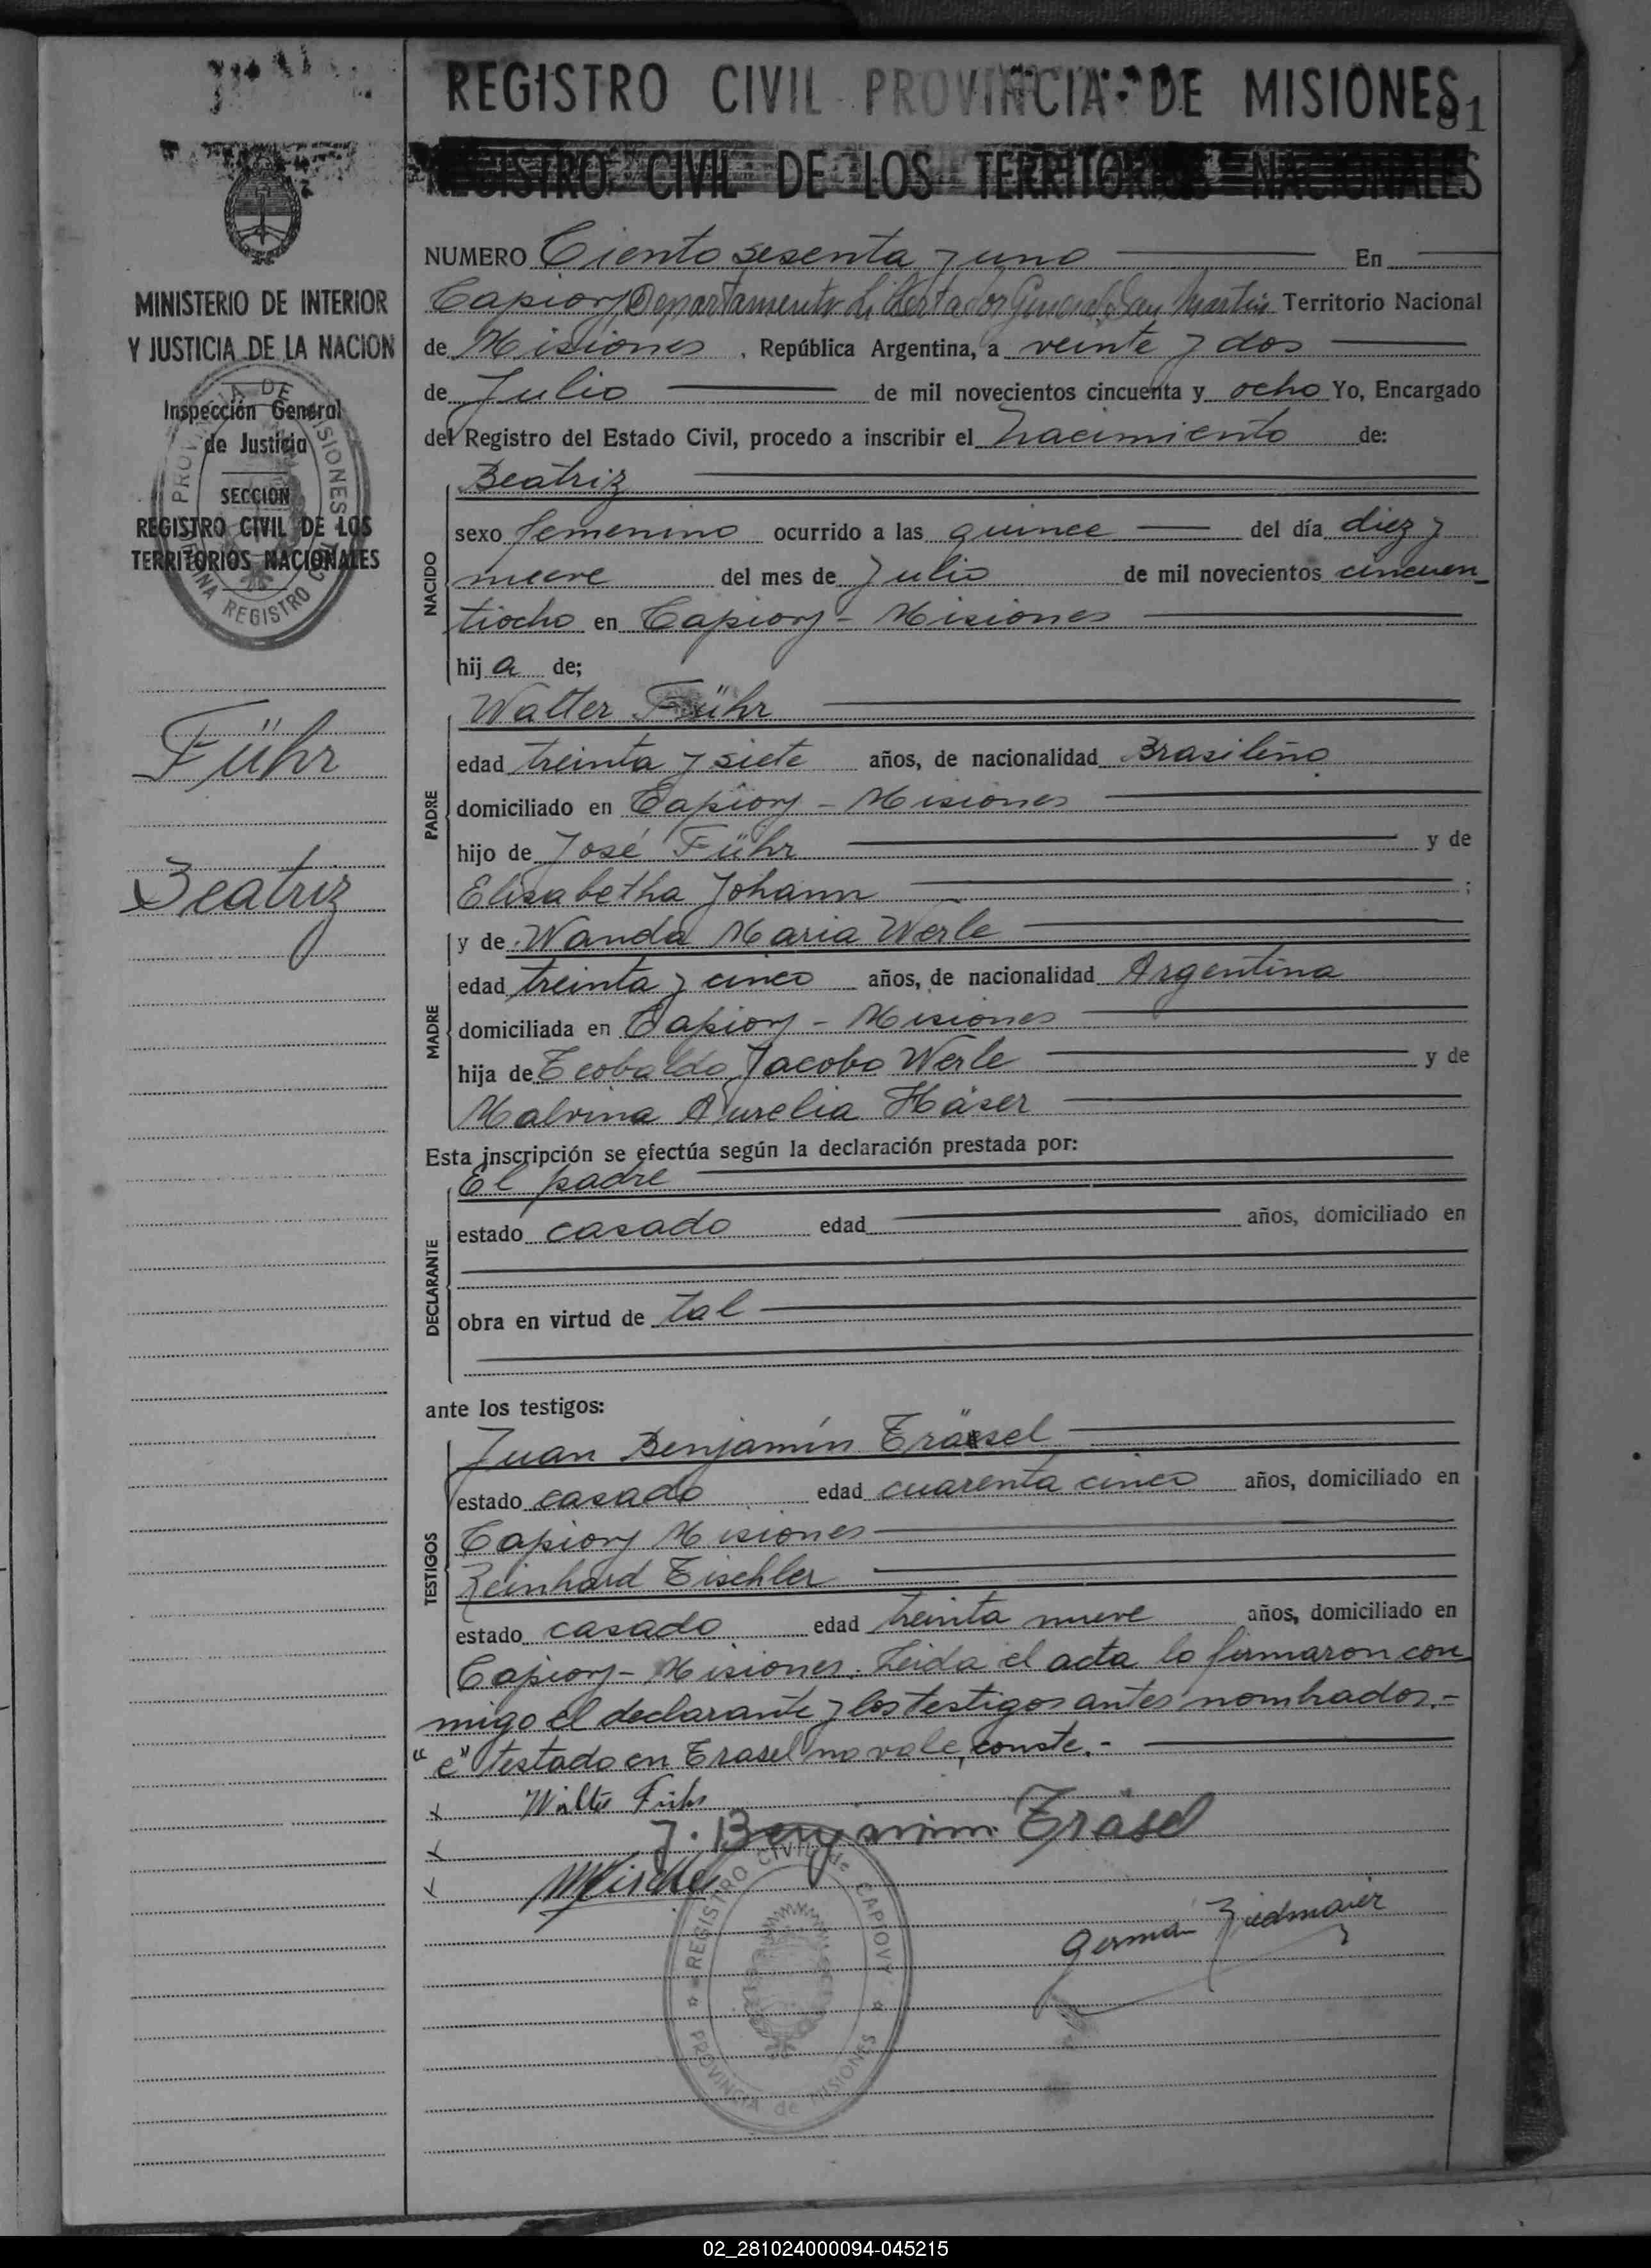 REGISTRO CIVIL PROVINCIA DE MISIONES
81
REGISTRO CIVIL DE LOS TERRITORIOS NACIONALES
MINISTERIO DE INTERIOR
Y JUSTICIA DE LA NACION
Inspección General
de Justicia
SECCION
REGISTRO CIVIL DE LOS
TERRITORIOS NACIONALES
Führ
Beatriz
NUMERO Ciento sesenta y uno En
Capiovy Departamento Libertador General San Martin Territorio Nacional
de Misiones, República Argentina, a veinte y dos
de Julio de mil novecientos cincuenta y ocho Yo, Encargado
del Registro del Estado Civil, procedo a inscribir el nacimiento de:
NACIDO
Beatriz
sexo femenino ocurrido a las quince del día diez y
nueve del mes de Julio de mil novecientos cincuen
tiocho en Capiovy - Misiones
hija de;
PADRE
Walter Führ
edad treinta y siete años, de nacionalidad Brasileño
domiciliado en Capiovy - Misiones
hijo de José Führ y de
Elisabetha Johann ;
MADRE
y de Wanda Maria Werle
edad treinta y cinco años, de nacionalidad Argentina
domiciliada en Capiovy - Misiones
hija de Teobaldo Jacobo Werle y de
Malvina Aurelia Häser
Esta inscripción se efectúa según la declaración prestada por:
DECLARANTE
El padre
estado casado edad años, domiciliado en
obra en virtud de tal
ante los testigos:
TESTIGOS
Juan Benjamín Träsel
estado casado edad cuarenta cinco años, domiciliado en
Capiovy Misiones
Reinhard Tischler
estado casado edad treinta nueve años, domiciliado en
Capiovy - Misiones. Leida el acta lo firmaron con
migo el declarante y los testigos antes nombrados.-
"e" testado en Trasel no vale, conste.-
x Walter Führ
x J. Benjamim Träsel
x
German Ziedmaier
REGISTRO CIVIL de CAPIOVY
PROVINCIA de MISIONES
02_281024000094-045215